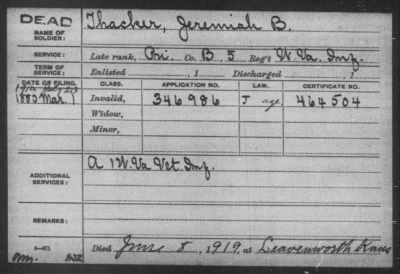 DEAD
NAME OF SOLDIER: Thacker, Jeremiah B.
SERVICE: Late rank, Pri. Co. B, 5 Reg't W. Va. Inf.
TERM OF SERVICE: Enlisted , 1 Discharged , 1
DATE OF FILING. CLASS. APPLICATION NO. LAW. CERTIFICATE NO.
1880 Mar. Invalid, 346986 J age 464504
Widow,
Minor,
ADDITIONAL SERVICES: A 1 W. Va Vet Inf.
REMARKS:
Died June 8, 1919, at Leavenworth Kans